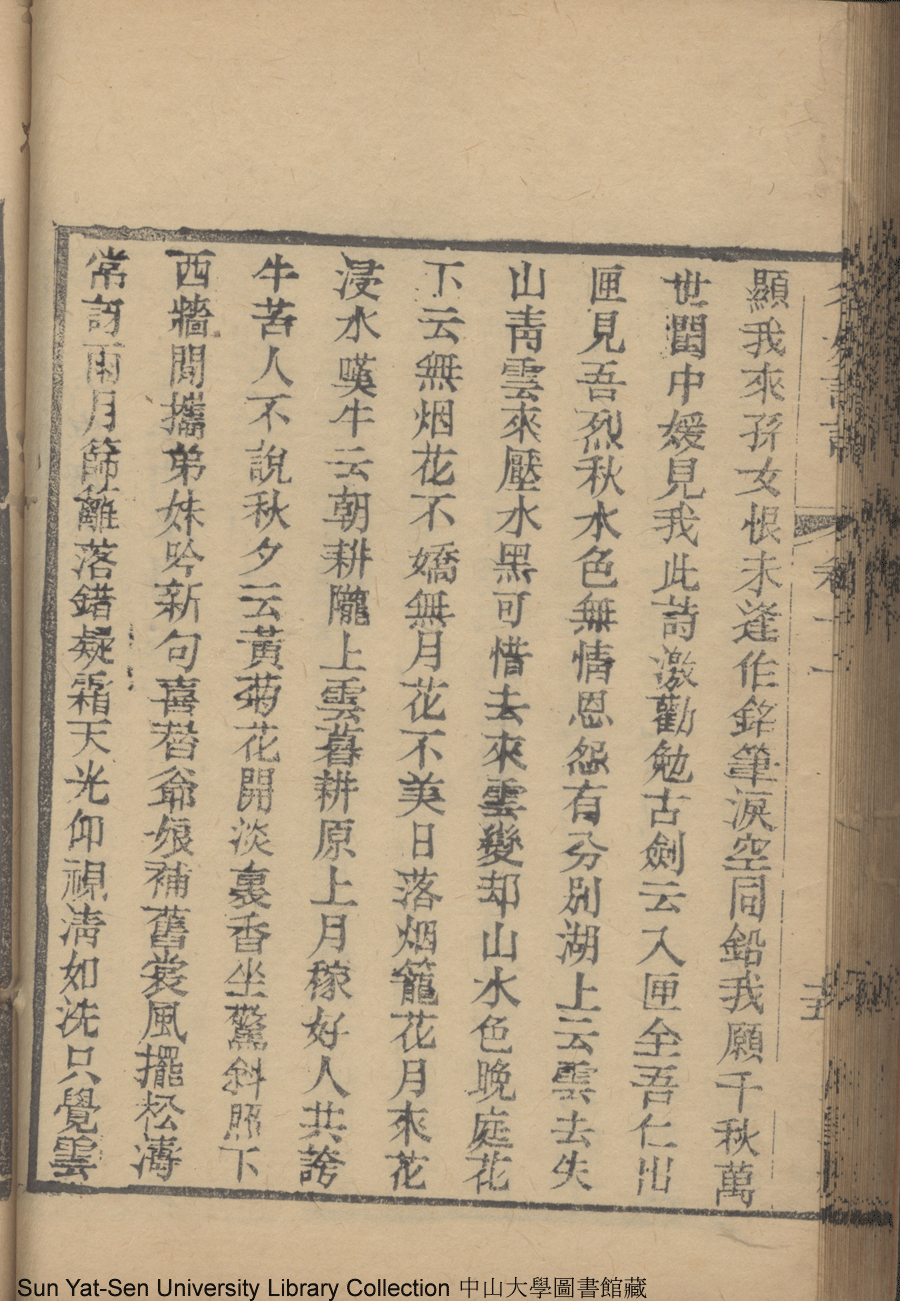 顯我來孫女恨未逢作銘筆淚空同鉛我願千秋萬
世閨中媛見我此詩激勸勉古劍云入匣全吾仁出
匣見吾烈秋水色無情恩怨有分別湖上云雲去失
山青雲來壓水黑可惜去來雲變却山水色晚庭花
下云無烟花不嬌無月花不美日落烟籠花月來花
浸水嘆牛云朝耕隴上雲暮耕原上月稼好人共誇
牛苦人不說秋夕云黃菊花開淡裏香坐驚斜照下
西牆閒攜弟妹吟新句喜替爺娘補舊裳風擺松濤
常訝雨月篩籬落錯疑霜天光仰視淸如洗只覺雲
Sun Yat-Sen University Library Collection 中山大學圖書館藏